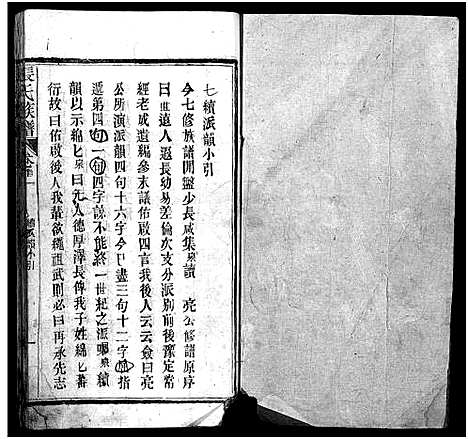 七續派韻小引
今七修族譜開盤少長咸集泉讀 亮公修譜原序
曰世遠人遐長幼易差倫次支分派別前後豫定常
經老成遺編參末議佑啟四言我後人云云僉曰亮
公所演派韻四句十六字今已盡三句十二字 指
遞第四句一句四字誤不能終一世紀之派 泉續
韻以示綿匕泉曰先人德厚澤長俾我子姓綿匕蕃
衍故曰佑啟後人我輩欲繩祖武則必曰再承先志
張氏族譜
卷首
續派韻小引
一